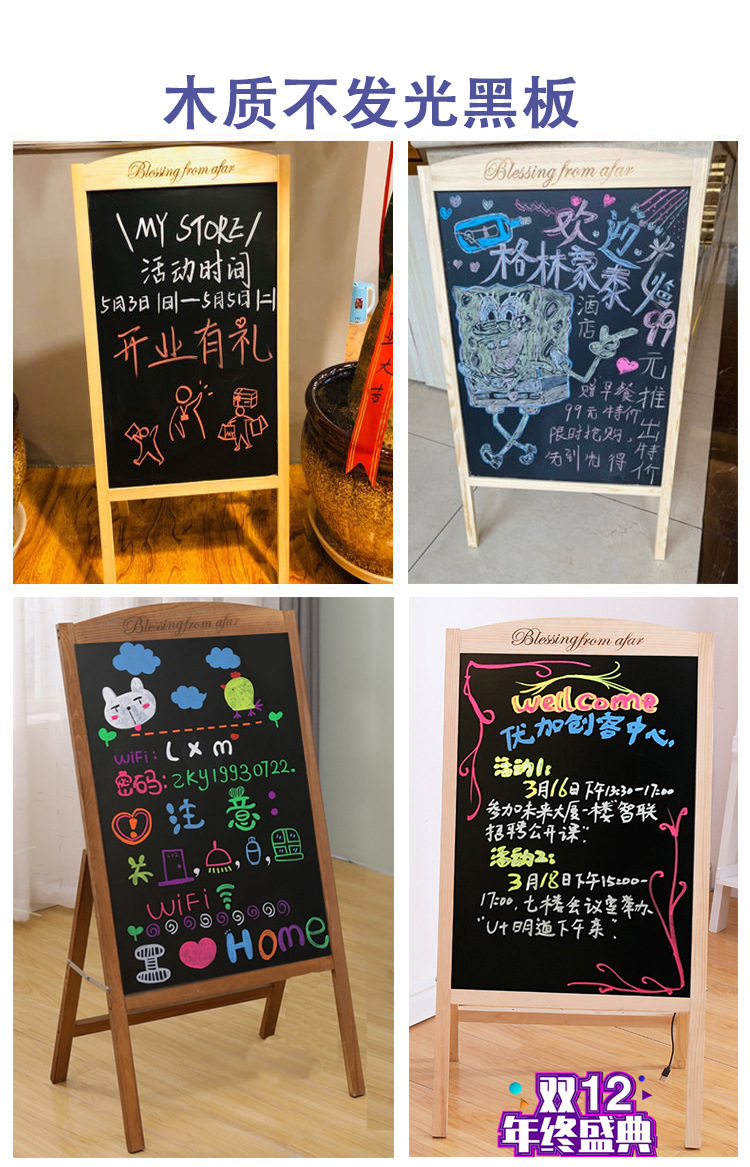 木质不发光黑板
Blessing from afar
\MY STORE/
活动时间
5月3日|日|—5月5日|二|
开业有礼
大吉
Blessing from afar
欢迎光临
格林豪泰
酒店
99元推出特价
赠早餐
99元特价
限时抢购,
先到先得
Blessing from afar
WiFi: Lxm
密码: zky19930722.
注意:
关 , , ,
WiFi
Home
Blessing from afar
wellcome
优加创客中心.
活动1:
3月16日下午13:30-17:00
参加未来大厦一楼智联
招聘公开课"
活动2:
3月18日下午15:00-
17:00,七楼会议室举办
"U+明道下午茶"
双12
年终盛典